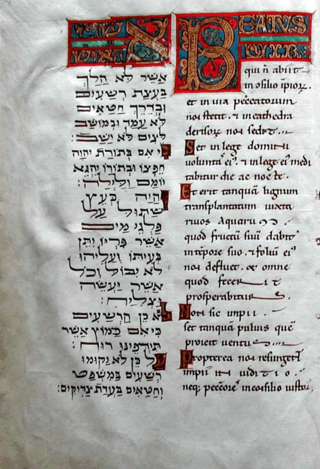 אשר לא הלך
בעצת רשעים
ובדרך חטאים
לא עמד ובמושב
לצים לא ישב:
כי אם בתורת יהוה
חפצו ובתורתו יהגה
יומם ולילה:
והיה כעץ
שתול על
פלגי מים
אשר פריו יתן
בעיתו ועליהו
לא יבול וכל
אשר יעשה
יצליח:
לא כן הרשעים
כי אם כמוץ אשר
תידפינו רוח
על כן לא יקומו
רשעים במשפט
וחטאים בעדת צדיקים:
BEATUS
UIR
qui n̄ abiit
in ꝯsilio ipiorꝝ
et in uia peccatorum
non stetit . & in cathedra
derisorꝝ non sedit
Set in lege domini
uoluntas ei⁹ . & in lege ei⁹ medi
tabitur die ac nocte .
Et erit tanquā lignum
transplantatum iuxta
riuos aquarum
quod fructū suū dabit
in tēpore suo . & foliū ei⁹
non defluet . & omne
quod fecerit
prosperabitur
Non sic impii
set tanquā puluis quē
proicit uentus
Propterea non resurgent
impii in iuditio
neq; peccatores in consilio iustorum